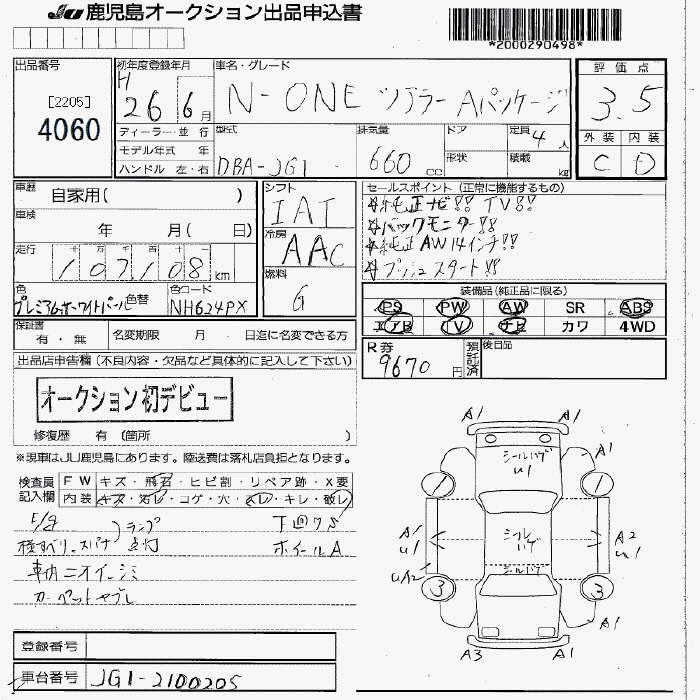 JU 鹿児島オークション出品申込書
*2000290498*
出品番号
[2205]
4060
初年度登録年月
H 26 6月
車名・グレード
N-ONE ツアラー Aパッケージ
評価点
3.5
外装 内装
C D
ディーラー・並行
モデル年式 年
ハンドル 左・右
型式
DBA-JG1
排気量
660 cc
ドア
形状
定員 4人
積載 kg
車歴
自家用( )
車検
年 月( 日)
走行
十 万 千 百 十 一
107108 km
色
プレミアムホワイトパール
色替
色コード
NH624PX
シフト
IAT
冷房
AAC
燃料
G
セールスポイント (正常に機能するもの)
☆純正ナビ!! TV!!
☆バックモニター!!
☆純正AW14インチ!!
☆プッシュスタート!!
装備品(純正品に限る)
PS PW AW SR ABS
エアB TV ナビ カワ 4WD
保証書
有・無
名変期限 月 日迄に名変できる方
R券
9670円
預託済
後日品
出品店申告欄(不良内容・欠品など具体的に記入して下さい)
オークション初デビュー
修復歴 有 (箇所 )
※現車はJU鹿児島にあります。陸送費は落札店負担となります。
検査員記入欄
FW キズ・飛石・ヒビ割・リペア跡・X要
内装 キズ・汚レ・コゲ・穴・スレ・キレ・破レ
E/g ランプ
種すべり、スパナ 点灯
下回りS
ホイールA
車内ニオイ、シミ
カーペットヤブレ
A1
シールハゲ
U1
A1
1
1
A1
U1
シールハゲ
A2
U1
シールハゲ
UA2
3
3
A1
A3
A1
登録番号
車台番号
JG1-2100205